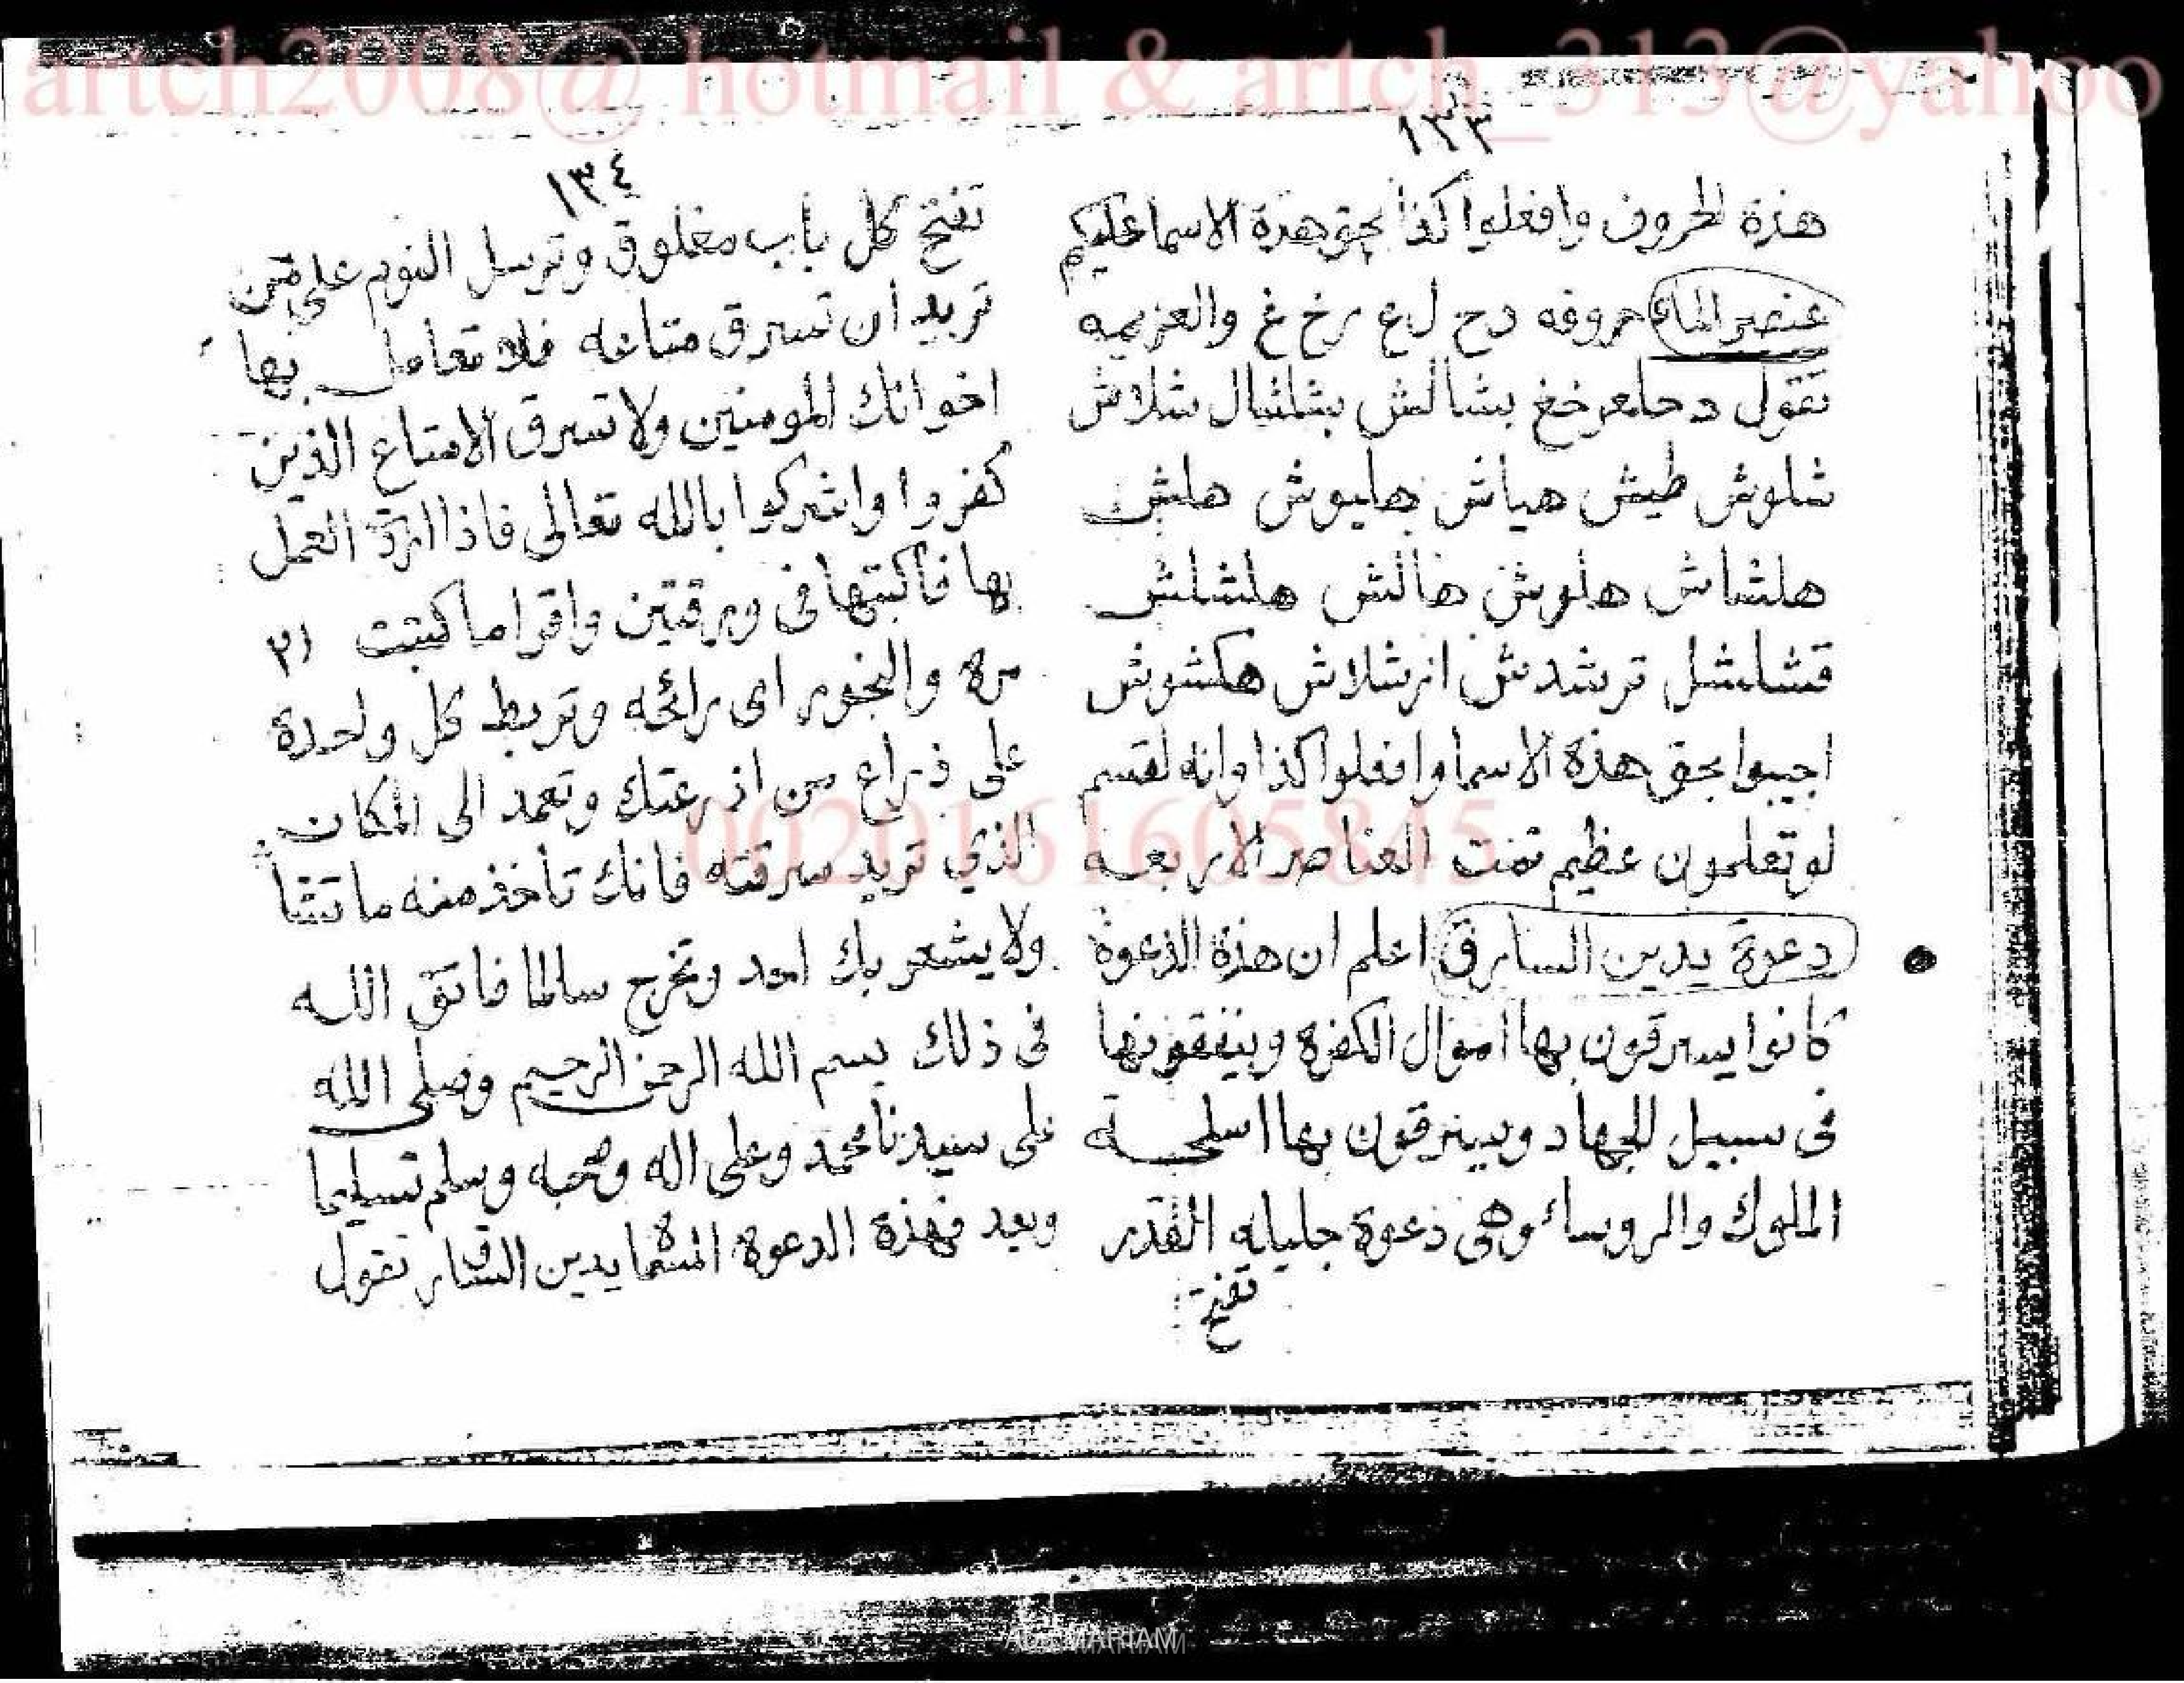 artch2008@ hotmail & artch_313@yahoo
١٣٣
هذة الحروف وافعلوا كذا بحق هذة الاسما عليكم
عنصر الماء حروفه دح لع رخ غ والعزيمه
تقول دحلعرخغ بشالش بشلشال شلاش
شلوش طيش هياش هليوش هلش
هلشاش هلوش هالش هلشلش
قشلشل ترشدش ارشلاش هكشوش
اجيبوا بحق هذة الاسما وافعلوا كذا وانه لقسم
لو تعلمون عظيم تمت العناصر الاربعه
دعوة يدين السارق اعلم ان هذة الدعوة
كانوا يسرقون بها اموال الكفرة وينفقونها
فى سبيل الجهاد ويسرقون بها اسلحة
الملوك والروسائ وهى دعوة جليله القدر
تفتح
١٣٤
تفتح كل باب مغلوق وترسل النوم على من
تريد ان تسرق متاعه فلا تعامل بها
اخوانك المومنين ولا تسرق الا متاع الذين
كفروا واشركوا بالله تعالى فاذا اردت العمل
بها فاكتبها فى ورقتين واقرا ما كتبت ٣١
مره والبخور اى رائحه وتربط كل واحدة
على ذراع من اذرعتك وتعمد الى المكان
الذي تريد سرقته فانك تأخذ منه ما تشأ
ولا يشعر بك احد وتخرج سالما فاتق الله
فى ذلك بسم الله الرحمن الرحيم وصلى الله
على سيدنا محمد وعلى اله وصحبه وسلم تسليما
وبعد فهذة الدعوة المسماة يدين السارق تقول
0020161605845